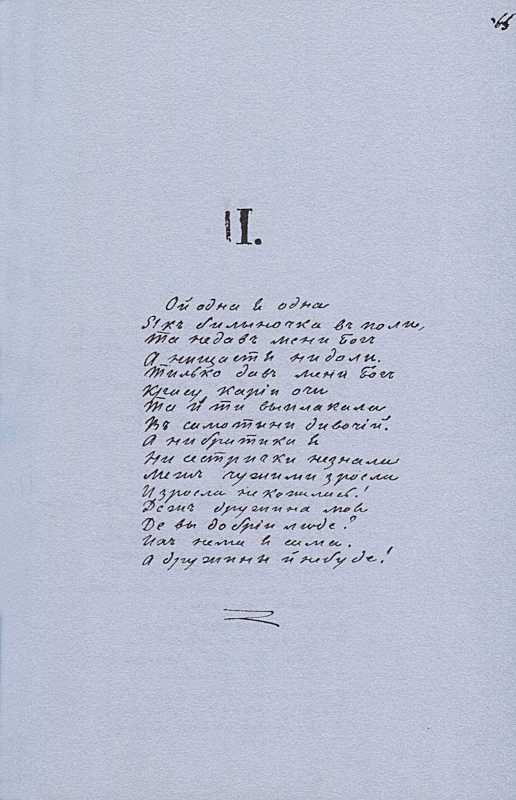 65
II.
Ой одна я одна
Якъ былыночка въ поли,
Та недавъ мени Богъ
А нищастя нидоли.
Тилько давъ мени Богъ
Красу карiи очи
Та й ти выплакала
Въ самотыни дивочiй.
А нибратика я
Ни сестрички незнала
Межъ чужими зросла
Изросла некохалась!
Дежъ дружина моя
Де вы добрiи люде?
Ихъ нема я сама.
А дружины й небуде!